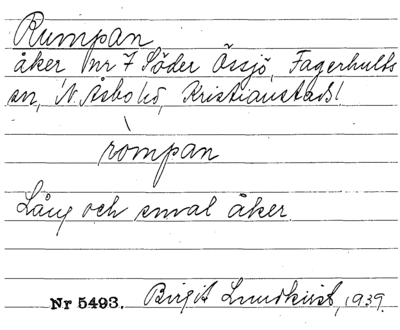 Rumpan
åker nr 7 Söder Össjö, Fagerhults
sn, N. Åsbo hd, Kristianstads l
ròmpan
Lång och smal åker.
Nr 5493. Birgit Lundkvist, 1939.